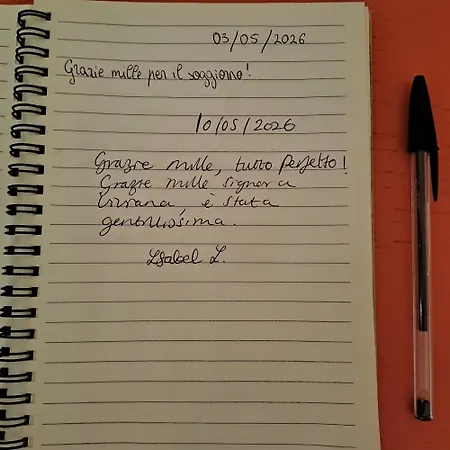 03/05/2026
Grazie mille per il soggiorno!
10/05/2026
Grazie mille, tutto perfetto!
Grazie mille signora
è stata
gentilissima.
Isabel L.